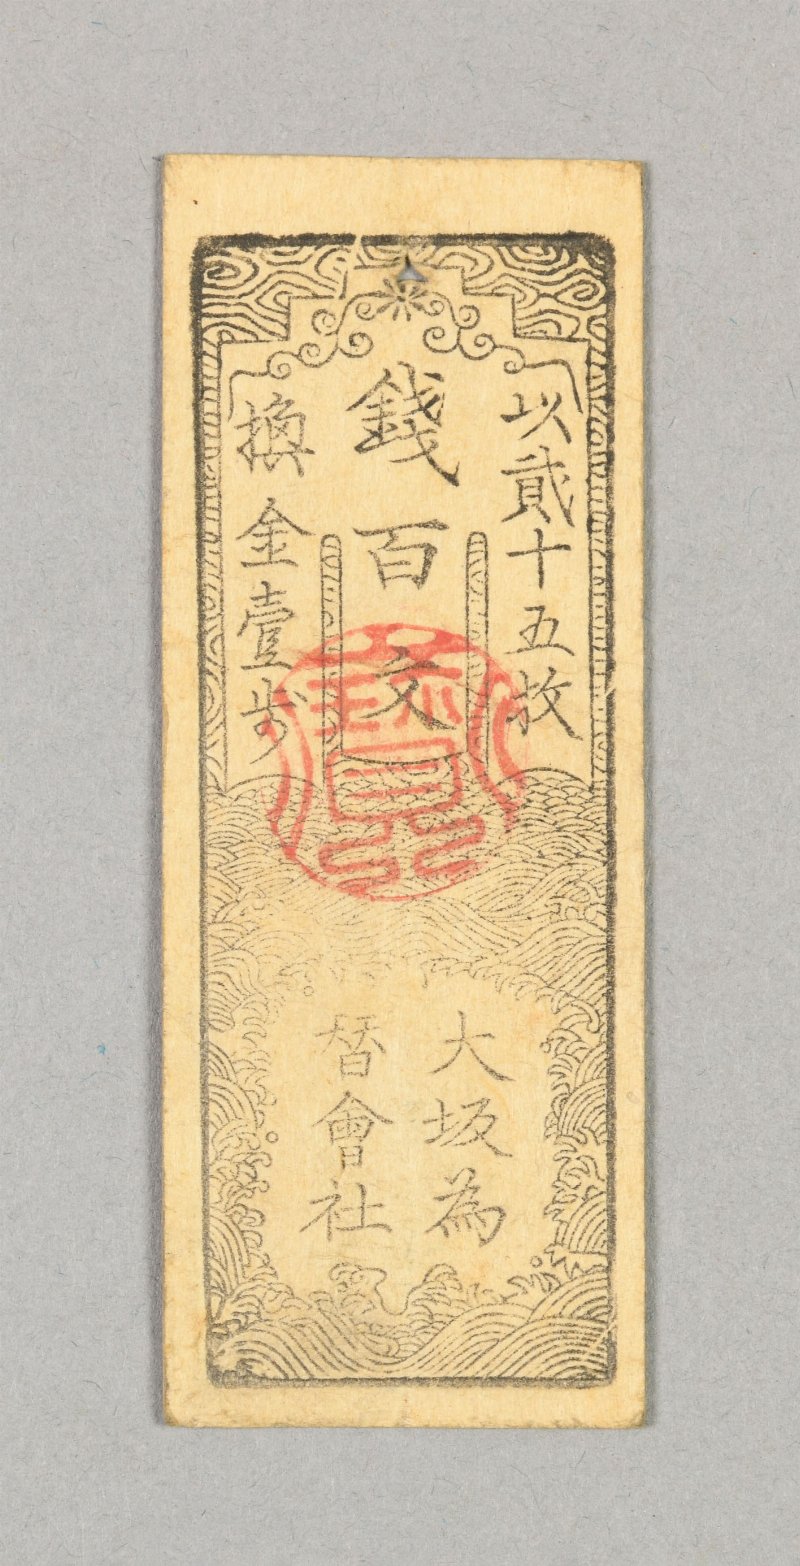 以貳十五枚
錢百文
換金壹步
大坂為
替會社